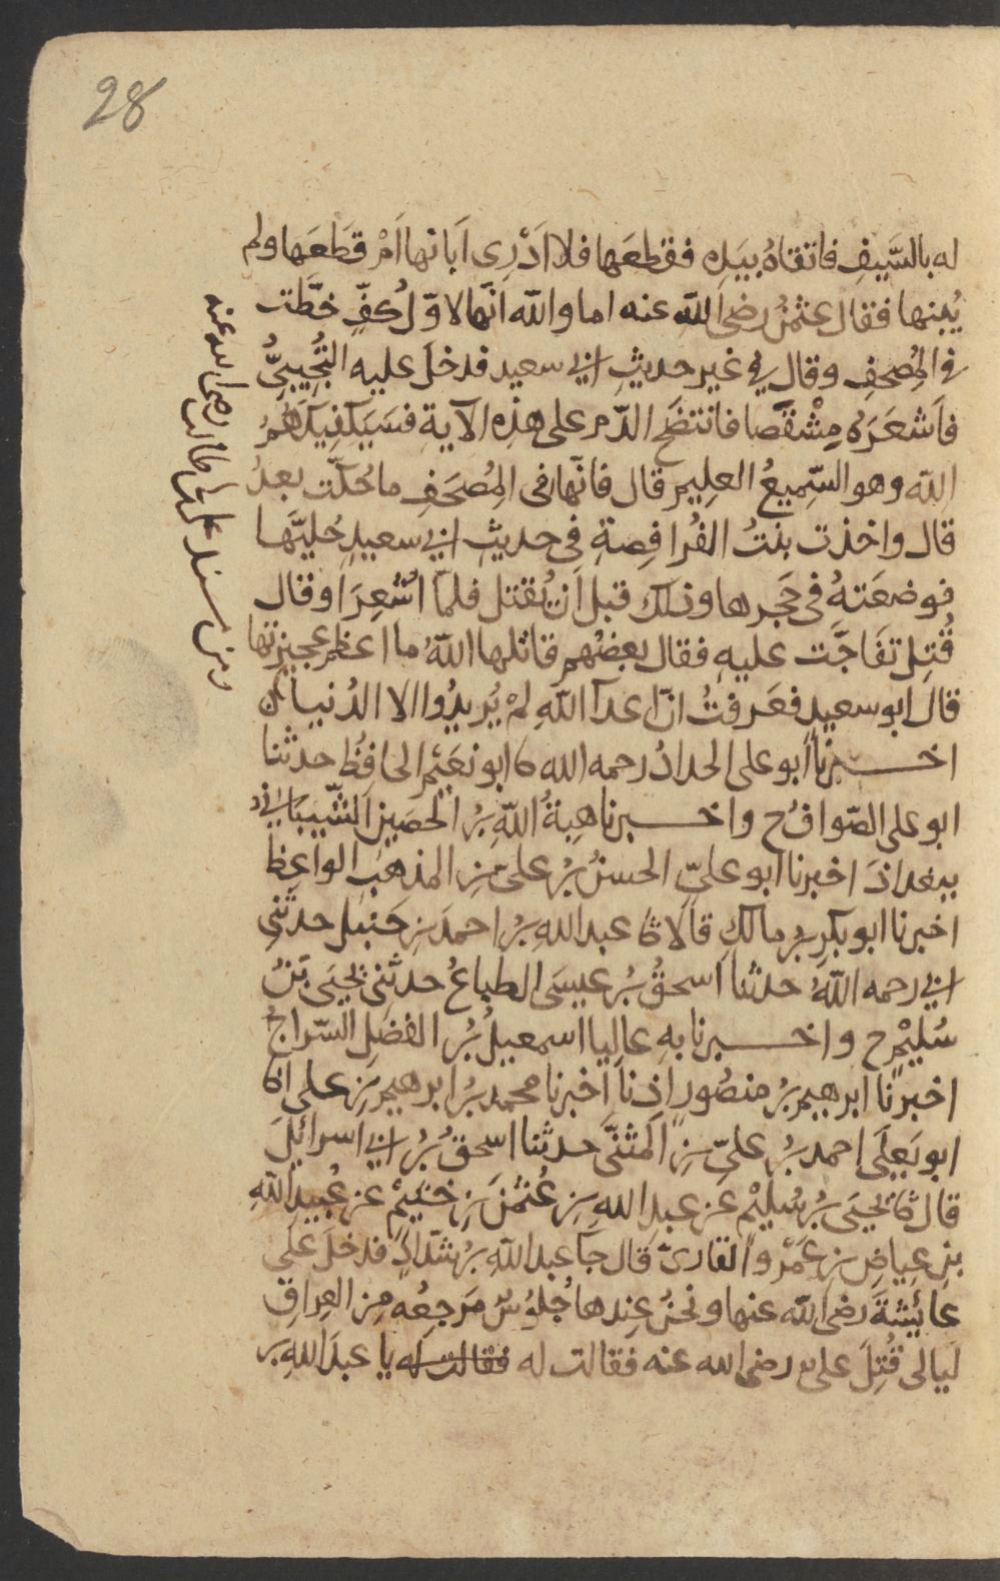 28
له بالسَّيفِ فاتقاهُ بيَدِه فقطعَها فلا اَدْرِى اَبانها اَمْ قَطَعَها ولم
يُبنها فقال عثمٰنُ رضى الله عنه اما والله انّها لاوّلُ كفٍّ خطَّت
فى المُصحفِ وقال فى غير حديثِ ابى سعيد فدخلَ عليه التُّجِيبىُّ
فاَشعَرَهُ مِشْقَصا فانتضَح الدّم على هذِه الآية فسَيَكفِيكَهُمُ
الله وهو السّميعُ العلِيم قال فانّها فى المُصحَفِ ما حُكّت بعدُ
قال واخذت بنتُ الفُرافِصةِ فى حديثِ ابى سعيدٍ حُليَّها
فوضعَتهُ فى حَجرها وذلك قبل اَن يُقتل فلمّا اُشعِرَ او قال
قُتِل تفَاجَّت عليهِ فقال بعضُهم قاتلها اللهُ ما اعظم عجيزتها
قال ابو سعيد فعَرفتُ انّ اعدآ اللهِ لمْ يُريدُوا الا الدُنيا
اخــبرنا ابو على الحدادُ رحمه الله انا ابو نعَيْم الحافظُ حدثنا
ابو على الصّوافُ ح واخــبرنا هِبةُ اللهِ بنُ الحصَين الشّيبانى
ببغداذَ اخبرنا ابو علىّ الحسنُ بنُ علىّ بنِ المذهبِ الواعِظ
اخبرنا ابو بكرِ بنُ مالكٍ قالا ثنا عبد اللهِ بنُ احمدَ بنِ حَنبل حدثنى
ابى رحمه اللهُ حدثنا اسحقُ بنُ عيسَى الطباعُ حدثنى يحيَى بْنُ
سُليْمٍ ح واخــبرنا بهِ عاليا اسمعيلُ بْنُ الفضلِ السّراجُ
اخبرنا ابرهيم بنُ منصُورٍ اِذنا اخبرنا محمد بنُ ابرهيم بنِ على انا
ابو يَعلَى احمد بنُ علىّ بنِ المثنَّى حدثنا اسحقُ بْنُ ابى اسرائيلَ
قال ثنا يحيَى بنُ سُليْمٍ عن عبد اللهِ بنِ عُثمٰنَ بنِ خثيْمٍ عن عُبيدِ اللهِ
بنِ عِياضِ بنِ عَمْرٍو القارىّ قال جآ عبد اللهِ بنُ شدّادٍ فدخلَ على
عائشةَ رضى الله عنها ونحنُ عِندها جُلوُسٌ مَرجعُه مِن العِراقِ
ليالى قُتِلَ علىٌّ رضى الله عنه فقالت له فقالت له يا عبدَ اللهِ بنَ
ومن مسند على بن ابى طالب رضى الله عنه